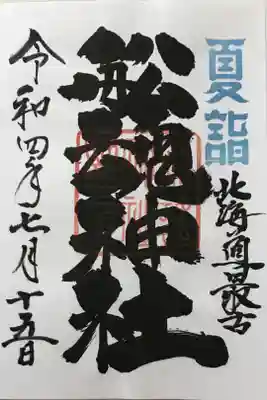 夏詣
北海道最古
舩魂神社
令和四年七月十五日